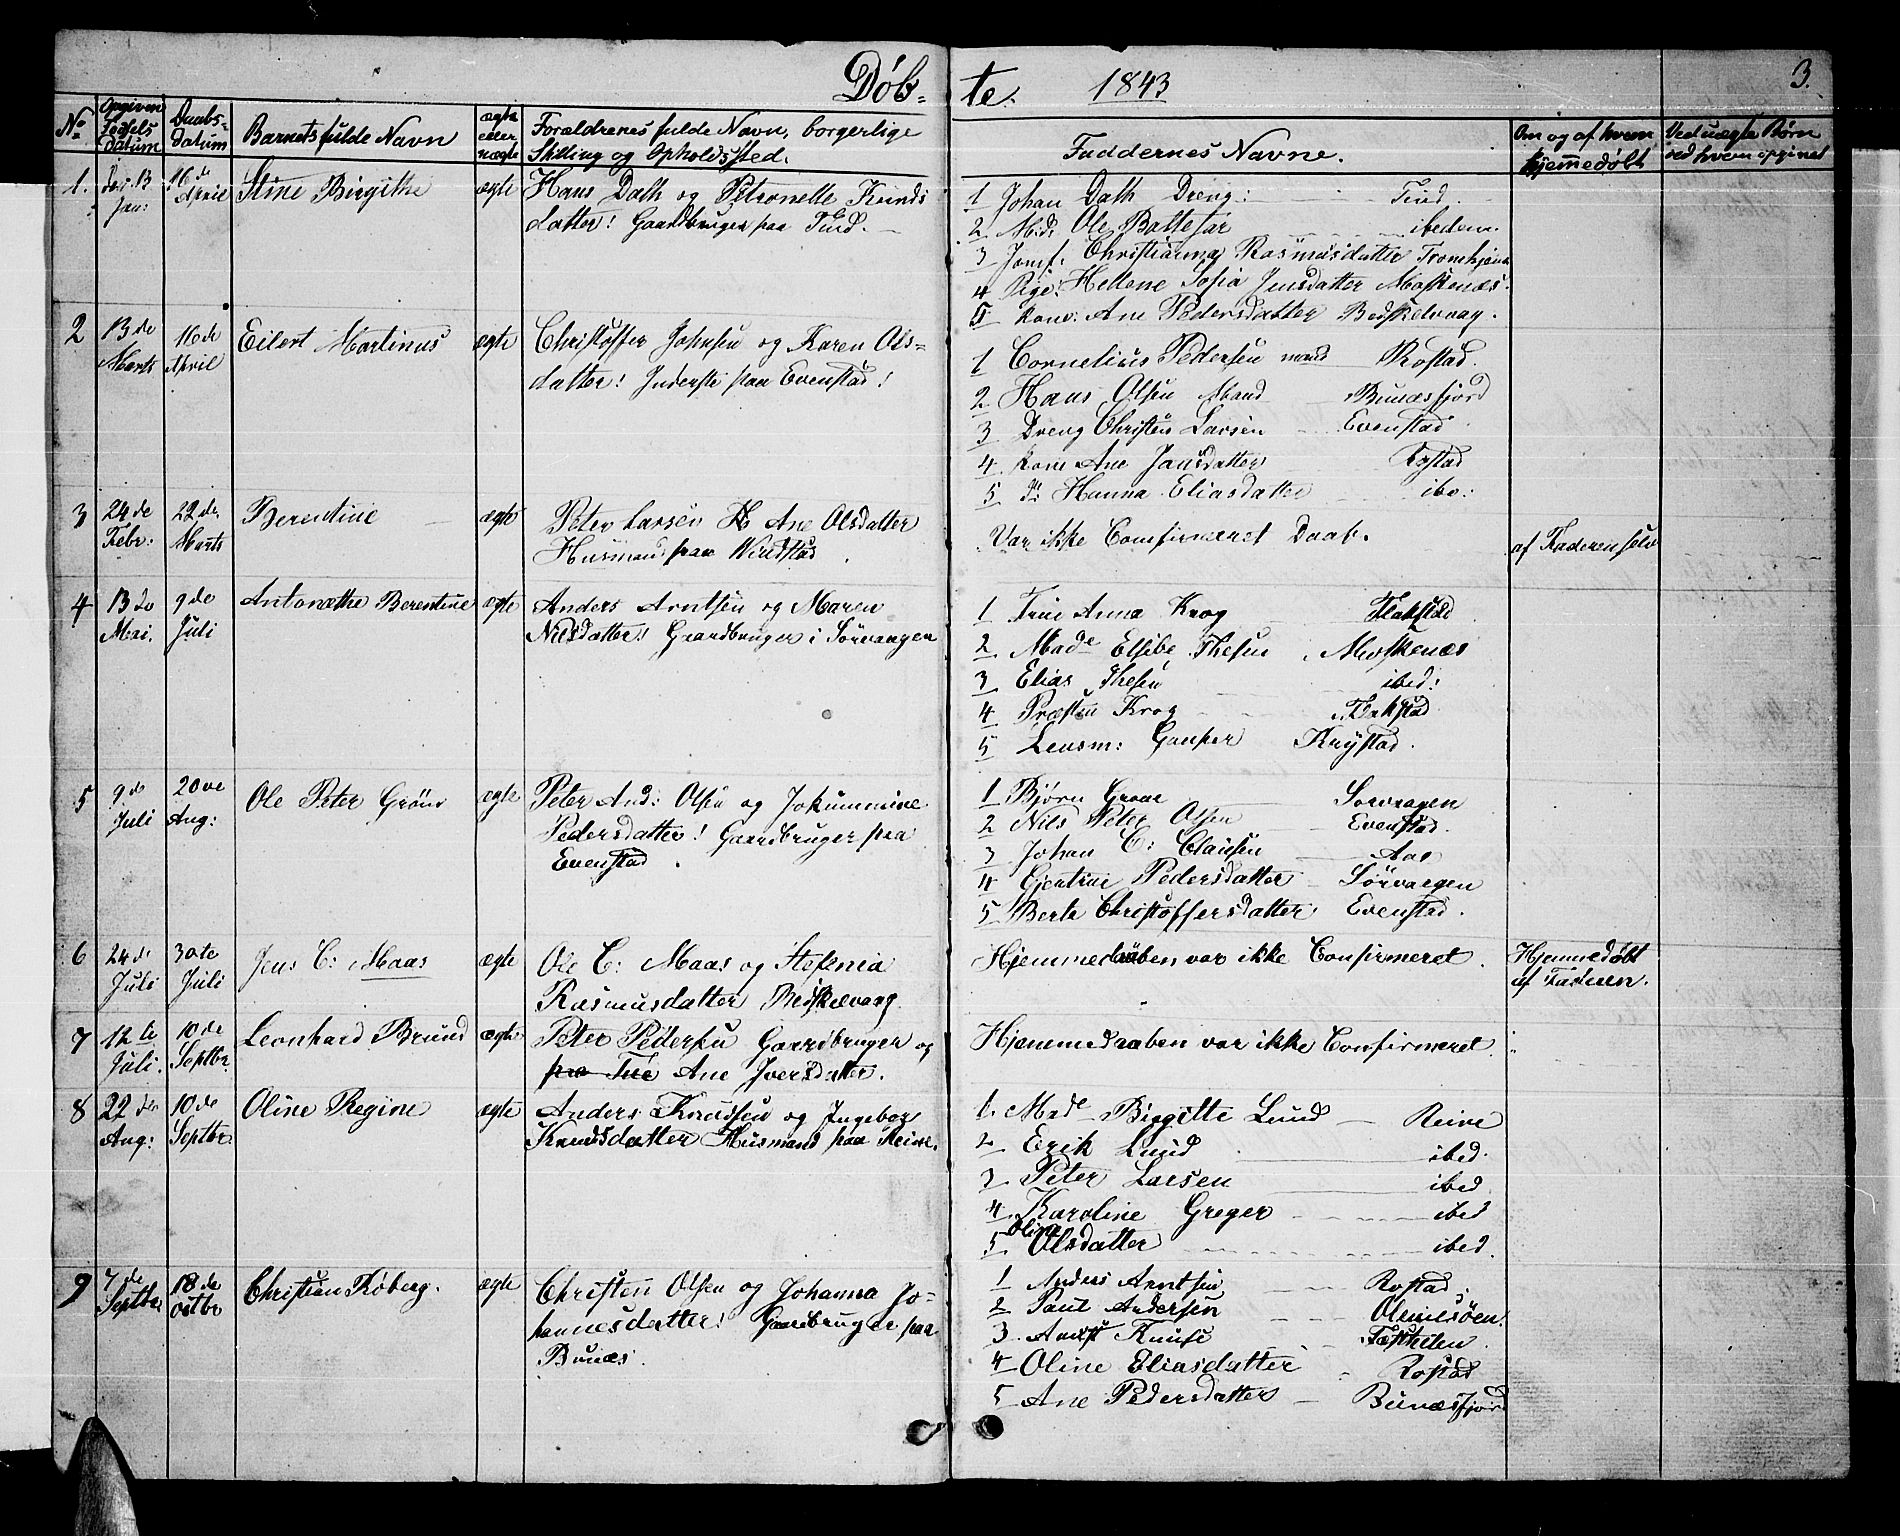 Døb= te. 1843 3.
No
Opgiven Fødsels datum
Daabs= datum
Barnets fulde Navn
ægte eller uægte
Forældrenes fulde Navn, borgerlige
Stilling og Opholdssted.
Faddernes Navne.
Om og af hvem hjemmedøbt
Ved uægte Børn ved hvem opgivet
1. den 13 Jan: 16de April Stine Birgithe ægte
Hans Dath og Petronelle
datter! Gaardbruger paa Tind.
1 Johan Dath Dreng: Tind
2 Md: Ole Baltesar ibedem.
3 Jomf: Christianna Rasmusdatter
4 Pige: Hellene Sofia Jensdatter Moskenæs.
5 kone: Ane Pedersdatter Bedskelvaag.
2 13de Marts 16de April Eilert Martinus ægte
Christoffer Johnsen og Karen Ols=
datter! Inderste paa Evenstad!
1 Cornelius Pedersen mand Rostad.
2 Hans Olsen Mand Bunæsfjord
3 Dreng Christen Larsen Evenstad
4 kone Ane Jansdatter Rostad
5 do Hanna Eliasdatter ibo:
3 24de Febr: 22de Marts Berentine ægte
Peter Larsen Ane Olsdatter
Husmand paa Vindstas
Var ikke Comfirmeret Daab.
af Faderen selv
4 13de Mai. 9de Juli Antonæthe Berentine ægte
Anders Arntsen og Maren
Nilsdatter! Gaardbruger i Sörvaagen
1 Frue Anna Krog Flakstad
2 Made Elsebe Thesen Moskenæs
3 Elias Thesen ibed:
4 Præsten Krog Flakstad
5 Lensm: Gauper Krystad.
5 9de Juli 20de Aug: Ole Peter Grönn ægte
Peter And: Olsen og Jokummine
Pedersdatter! Gaardbruger paa
Evenstad.
1 Bjørn Sorvaagen
2 Nils Peter Olsen Evenstad.
3 Johan C: Clausen Aae
4 Gjertrue Pedersdatter Sörvaagen
5 Berte Christoffersdatter Evenstad.
6 24de Juli 30te Juli Jens C: Maas ægte
Ole C: Maas og Stefenia
Rasmusdatter Bedskelvaag.
Hjemmedaaben var ikke Confirmeret.
Hjemmedøbt
af Faderen.
7 12te Juli. 10de Septbr. Leonhard Brund ægte
Peter Pedersen Gaardbruger og
Ane Iversdatter.
Hjemmedaaben var ikke Confirmeret.
8 22de Aug: 10de Septbr. Oline Regine ægte
Anders Knudsen og Ingebor
Knudsdatter Husmand paa Reine.
1. Made Birgitte Lund Reine
2 Erik Lund ibed.
3 Peter Larsen ibed
4 Karoline Greger ibed
5 Oline Olsdatter ibed.
9 7de Septbr. 18de Octbr Christian Roberg. ægte
Christen Olsen og Johanna Jo=
hannesdatter! Gaardbruger paa
Bunæs.
1 Anders Arntsen Rostad.
2 Paul Andersen Olenilsöen.
3
4 Oline Eliasdatter Rostad
5 Ane Pedersdatter Bunæsfjord